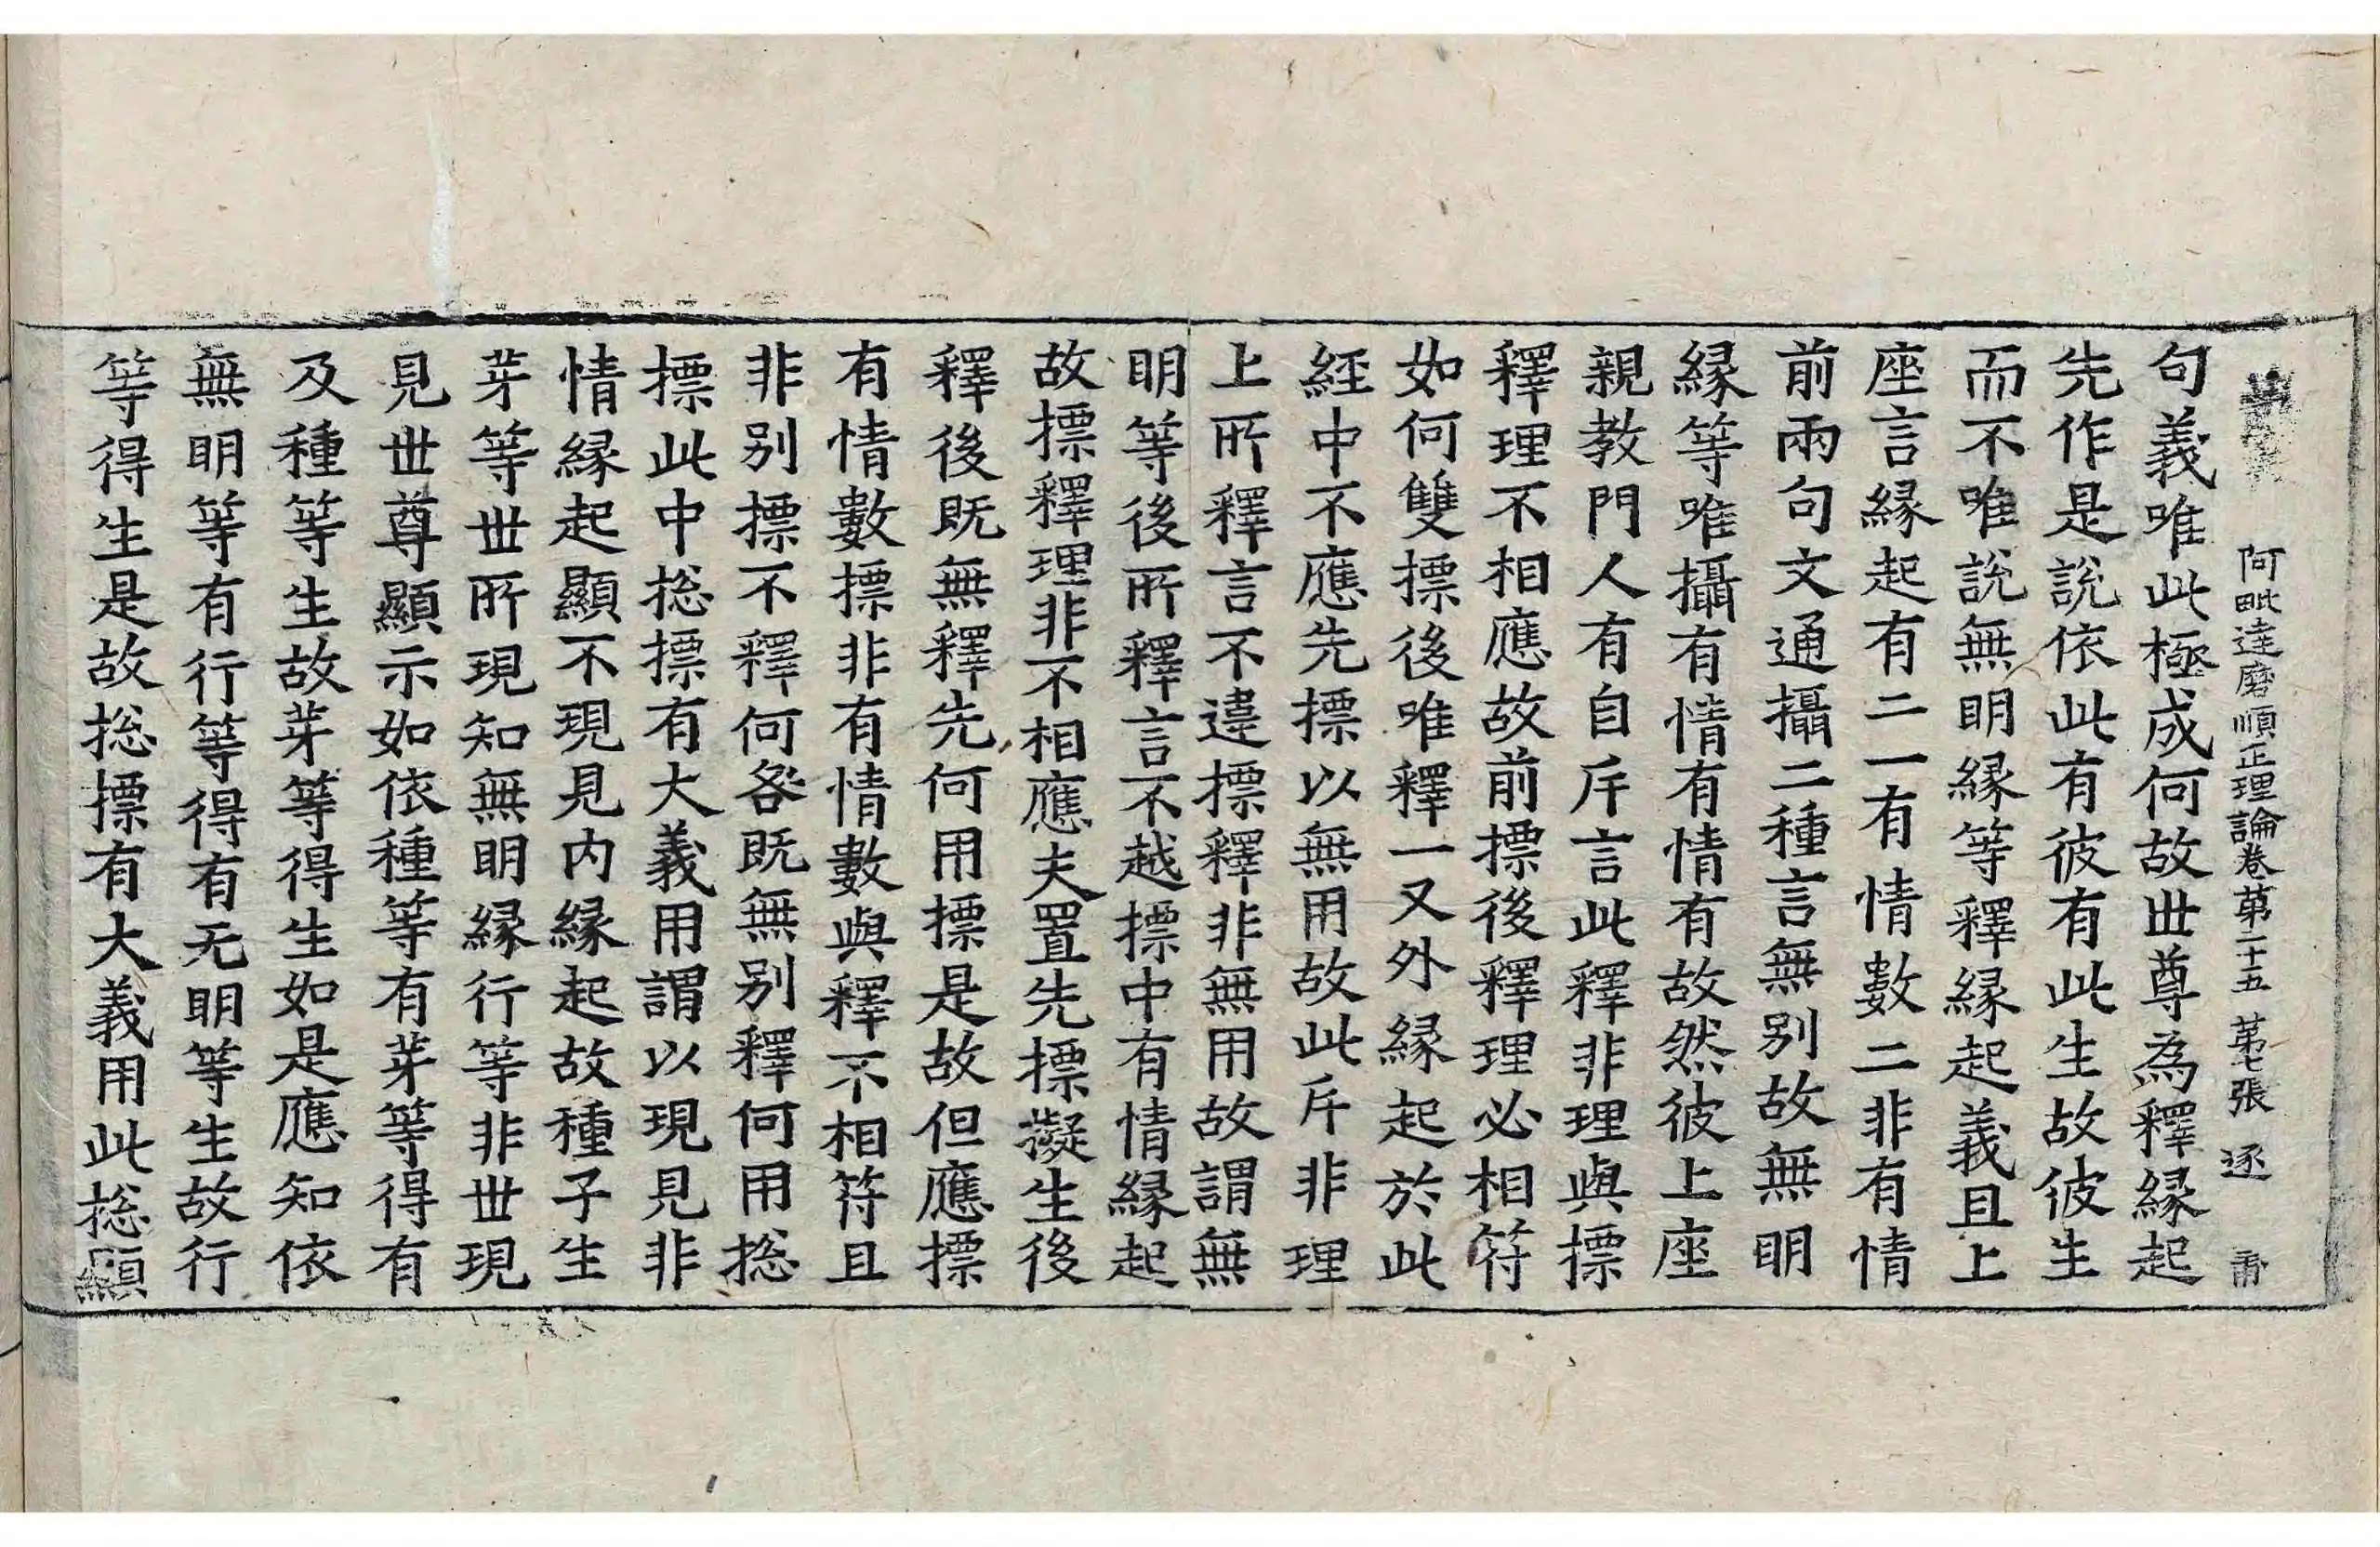 阿毗達磨順正理論卷第二十五 第七張 逐
句義唯此極成何故世尊為釋緣起
先作是說依此有彼有此生故彼生
而不唯說無明緣等釋緣起義且上
座言緣起有二一有情數二非有情
前兩句文通攝二種言無别故無明
緣等唯攝有情有情有故然彼上座
親教門人有自斥言此釋非理與摽
釋理不相應故前摽後釋理必相符
如何雙摽後唯釋一又外緣起於此
經中不應先摽以無用故此斥非理
上所釋言不違摽釋非無用故謂無
明等後所釋言不越摽中有情緣起
故摽釋理非不相應夫置先摽擬生後
釋後既無釋先何用摽是故但應摽
有情數摽非有情數與釋不相符且
非别摽不釋何咎既無别釋何用捴
摽此中捴摽有大義用謂以現見非
情緣起顯不現見内緣起故種子生
芽等世所現知無明緣行等非世現
見世尊顯示如依種等有芽等得有
及種等生故芽等得生如是應知依
無明等有行等得有无明等生故行
等得生是故捴摽有大義用此捴顯